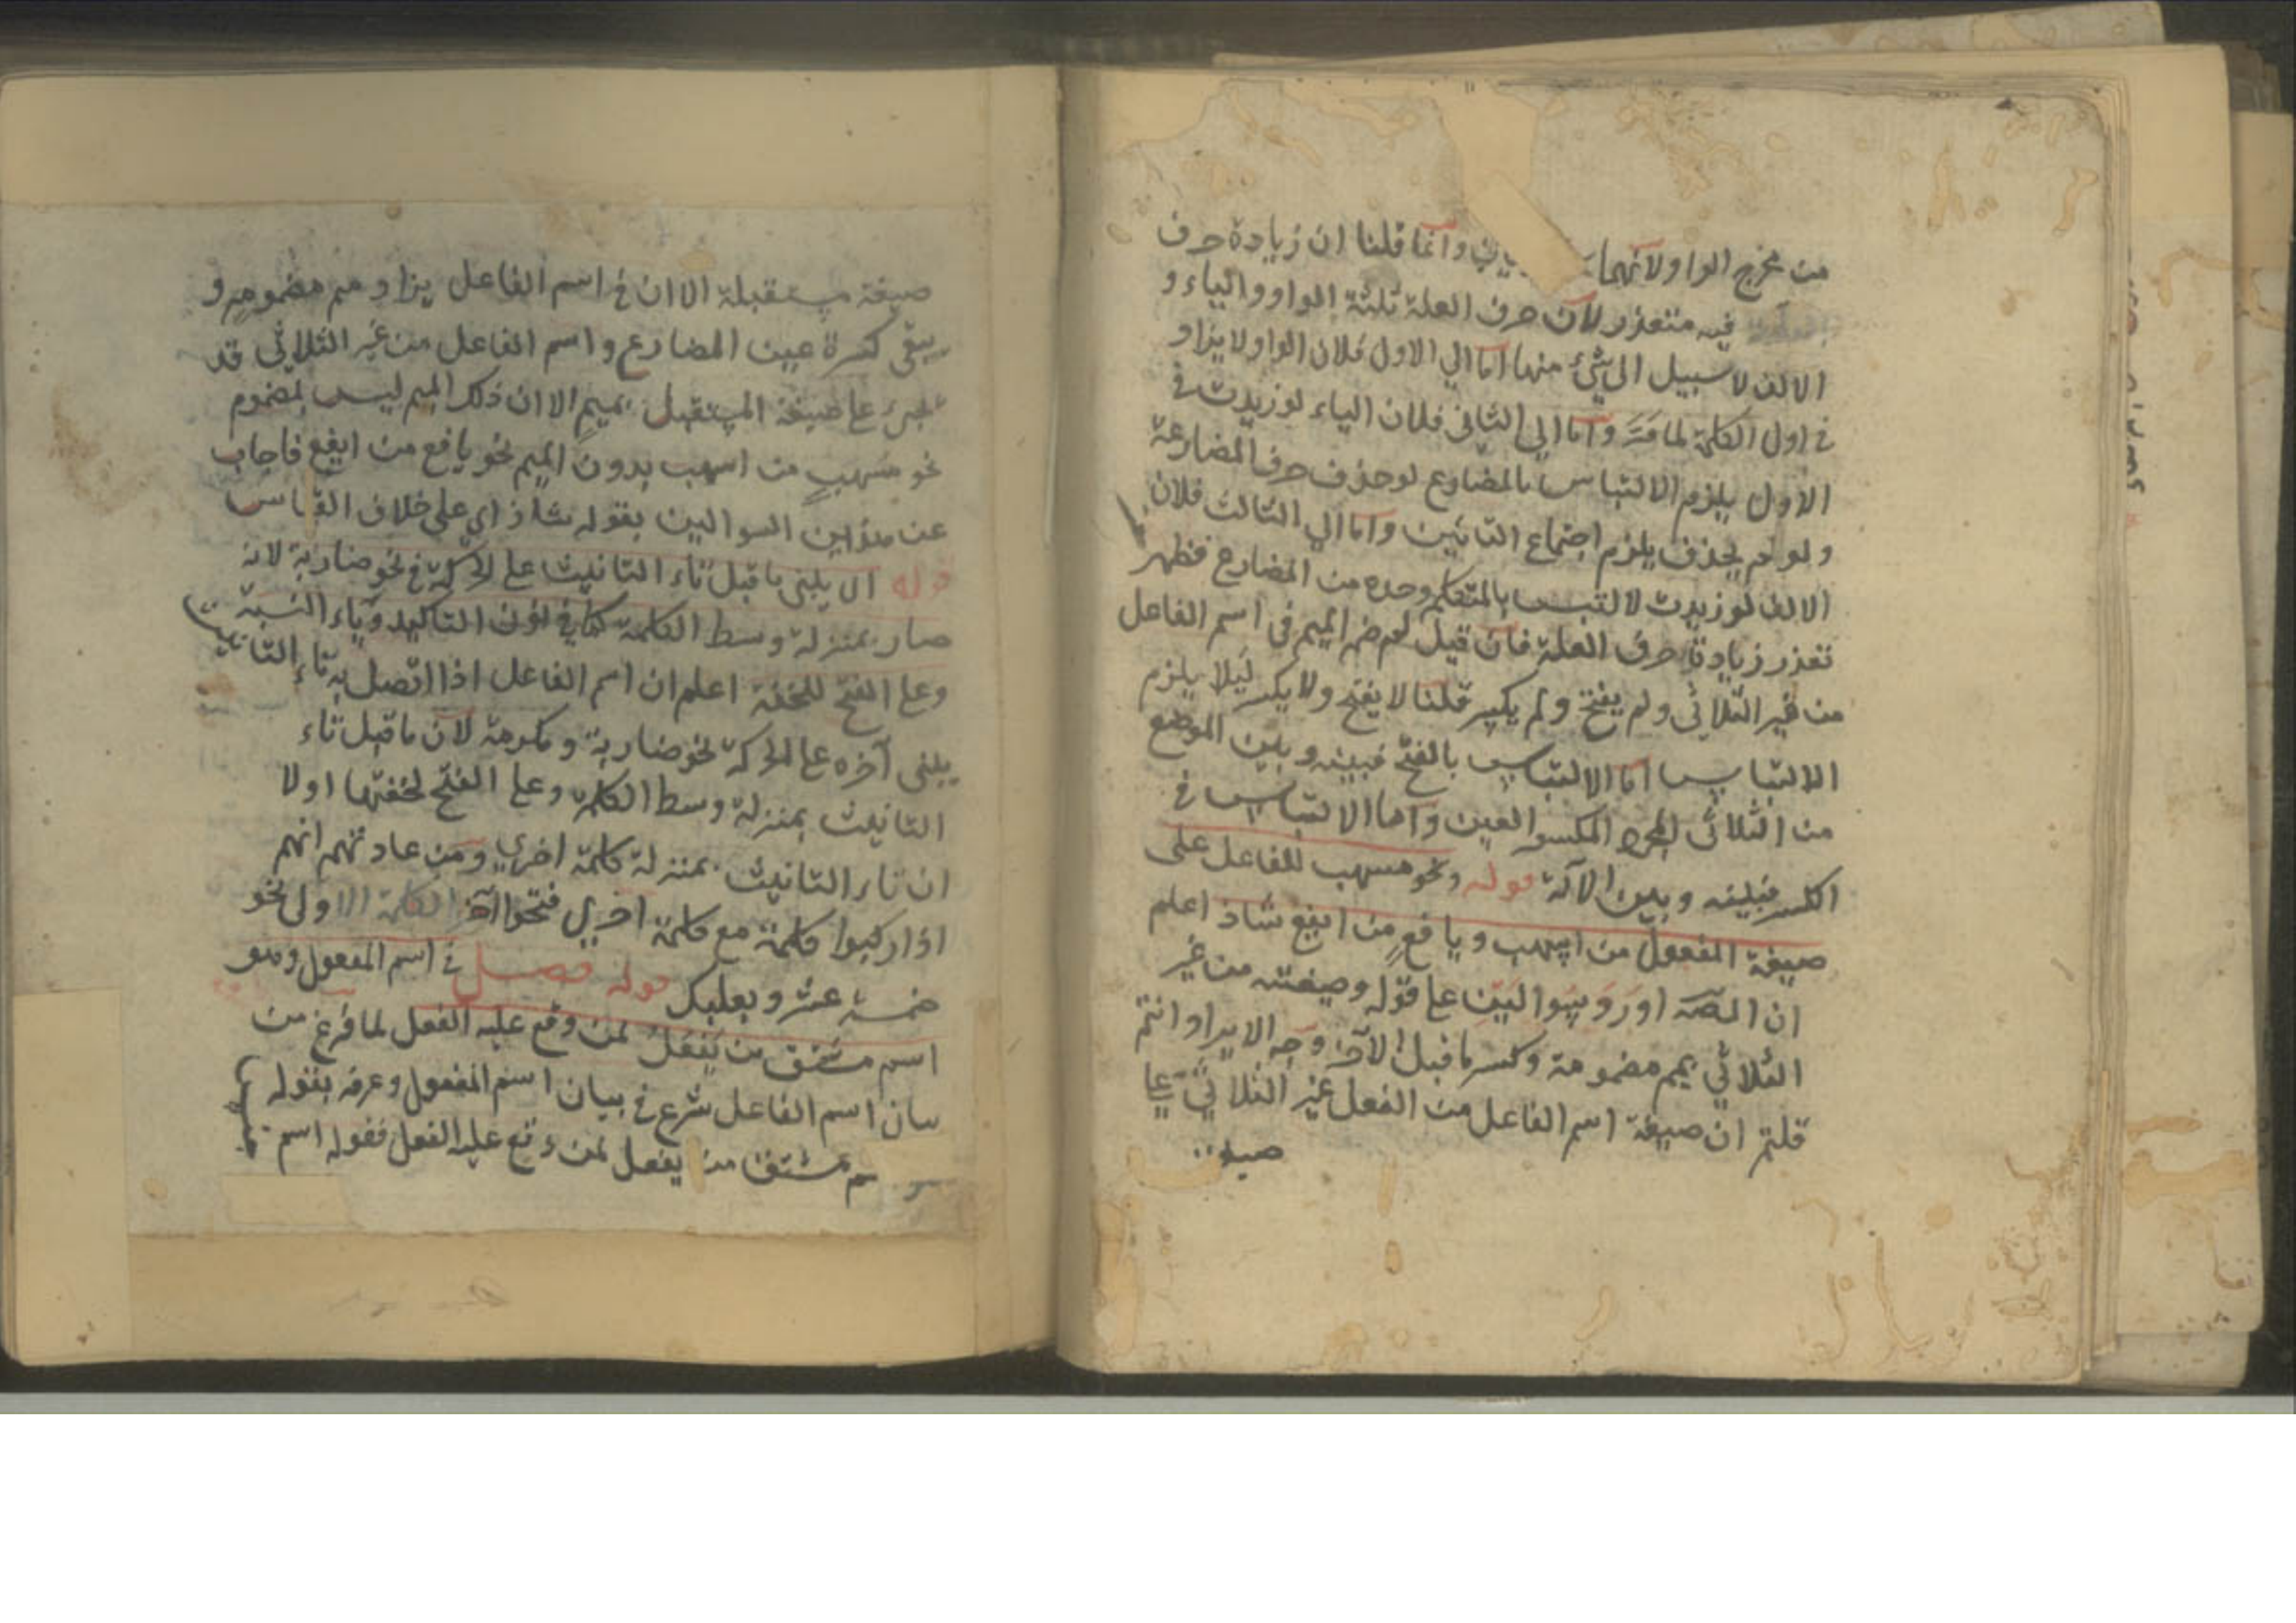 من مخرج الواو لانهما وانما قلنا ان زيادة حرف
فيه متعذر لان حرف العلة ثلثة الواو والياء و
الالف لا سبيل الى شئ منها اما الي الاول فلان الواو لا يزاد
في اول الكلمة لما مر واما الي الثاني فلان الياء لو زيدت في
الاول يلزم الالتباس بالمضارع لو حذف حرف المضارعة
ولو لم يحذف يلزم اجتماع اليائين واما الي الثالث فلان
الالف لو زيدت لالتبس بالمتكلم وحده من المضارع فظهر
تعذر زيادة حرف العلة فان قيل لم ضم الميم في اسم الفاعل
من غير الثلاثي ولم يفتح ولم يكسر قلنا لا يفتح ولا يكسر ليلا يلزم
الالتباس اما الالتباس بالفتح فبينه وبين الموضع
من الثلاثي المجرد المكسور العين واما الالتباس في
الكسر فبينه وبين الآلة قوله ونحو مسهب للفاعل على
صيغة المفعول من اسهب ويافع من ايفع شاذ اعلم
ان المصـ اورد سوالين على قوله وصيغته من غير
الثلاثي بميم مضمومة وكسر ما قبل الآخر وجه الايراد انتم
قلتم ان صيغة اسم الفاعل من الفعل غير الثلاثي على
صيغة
صيغة مستقبلة الا ان في اسم الفاعل يزاد ميم مضمومة و
يبقى كسرة عين المضارع واسم الفاعل من غير الثلاثي قد
يجئ على صيغة المستقبل بميم الا ان ذلك الميم ليس بمضموم
نحو مسهب من اسهب بدون الميم نحو يافع من ايفع فاجاب
عن هذين السوالين بقوله شاذ اي على خلاف القياس
قوله الا يبنى ما قبل تاء التانيث على الحركة في نحو ضاربة لانه
صار بمنزلة وسط الكلمة كما في نون التاكيد وياء النسبة
وعلى الفتح للخفة اعلم ان اسم الفاعل اذا اتصل به تاء التانيث
يبنى آخره على الحركة نحو ضاربة ومكرمة لان ما قبل تاء
التانيث بمنزلة وسط الكلمة وعلى الفتح لخفتها اولا
ان تاء التانيث بمنزلة كلمة اخرى ومن عادتهم انهم
اذا ركبوا كلمة مع كلمة اخرى فتحوا آخر الكلمة الاولى نحو
خمسة عشر وبعلبك قوله فصل في اسم المفعول وهو
اسم مشتق من يفعل لمن وقع عليه الفعل لما فرغ من
بيان اسم الفاعل شرع في بيان اسم المفعول وعرفه بقوله
اسم مشتق من يفعل لمن وقع عليه الفعل فقوله اسم